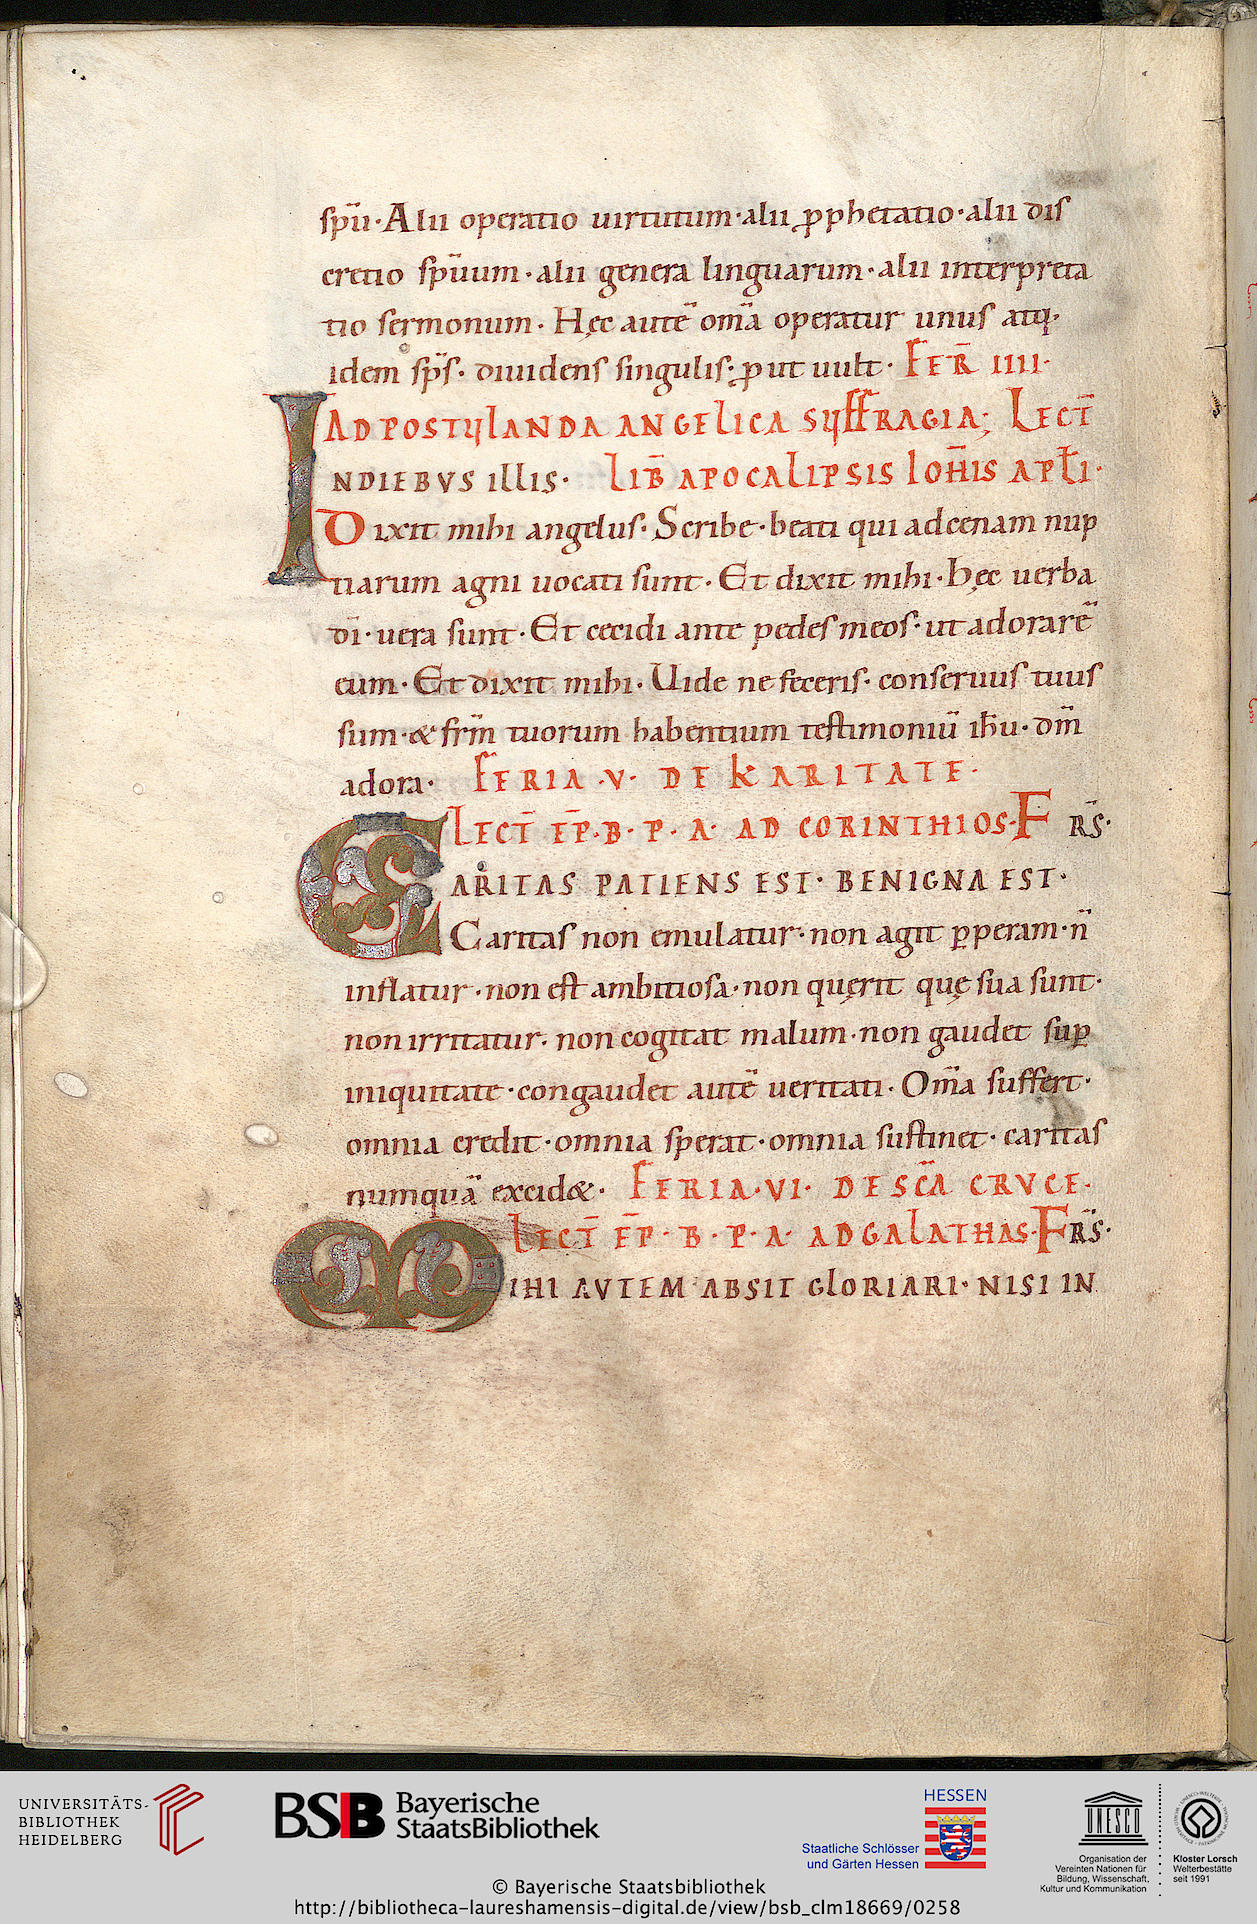 spū· Alii operatio uirtutum· alii ꝓphetatio· alii dis
cretio spūum· alii genera linguarum· alii interpreta
tio sermonum· Hęc autē om̄a operatur unus atq·
idem sp̄s· diuidens singulis· ꝓut uult· FER̄ IIII·
AD POSTULANDA ANGELICA SUFFRAGIA; LECT̄
INDIEBVS ILLIS· LIB̄ APOCALIPSIS IOH̄IS APŁI·
Dixit mihi angelus· Scribe· beati qui adcenam nup
tiarum agni uocati sunt· Et dixit mihi· Hęc uerba
dī· uera sunt· Et cecidi ante pedes meos· ut adorarē
eum· Et dixit mihi· Uide ne feceris· conseruus tuus
sum· & frm̄ tuorum habentium testimoniū ih̄u· dm̄
adora· FERIA ·V· DE KARITATE·
LECT̄ EP̄·B·P·A· AD CORINTHIOS· FRS̄·
CARITAS PATIENS EST· BENIGNA EST·
Caritas non emulatur· non agit ꝑperam· n̄
inflatur· non est ambitiosa· non quęrit quę sua sunt·
non irritatur· non cogitat malum· non gaudet suꝑ
iniquitate· congaudet autē ueritati· Om̄a suffert·
omnia credit· omnia sperat· omnia sustinet· caritas
numquā excid&· FERIA·VI· DE SCA̅ CRVCE·
LECT̄ EP̄·B·P·A· AD GALATHAS· FRS̄·
MIHI AVTEM ABSIT GLORIARI· NISI IN
UNIVERSITÄTS-
BIBLIOTHEK
HEIDELBERG
BSB Bayerische
StaatsBibliothek
HESSEN
Staatliche Schlösser
und Gärten Hessen
UNESCO
Organisation der
Vereinten Nationen für
Bildung, Wissenschaft,
Kultur und Kommunikation
Kloster Lorsch
Welterbestätte
seit 1991
© Bayerische Staatsbibliothek
http://bibliotheca-laureshamensis-digital.de/view/bsb_clm18669/0258